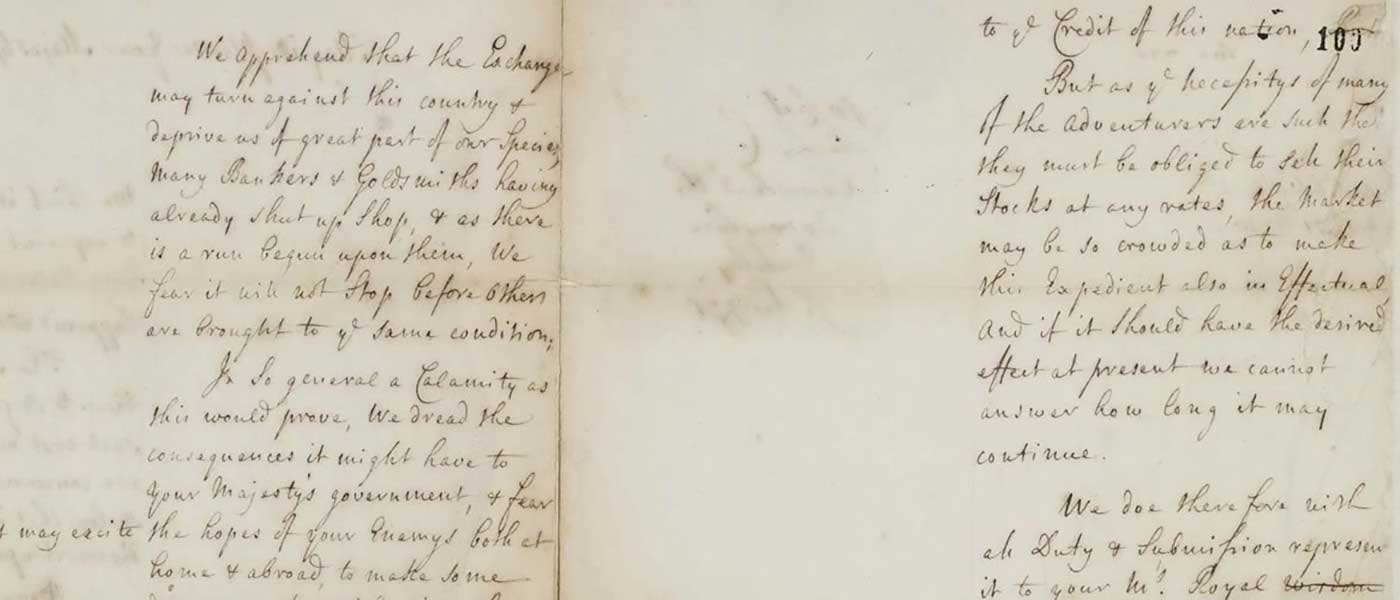 We apprehend that the Exchange
may turn against this country &
deprive us of great part of our Specie,
Many Bankers & Goldsmiths having
already shut up Shop, & as there
is a run begun upon them, We
fear it will not Stop before Others
are brought to yᵉ same condition;
In So general a Calamity as
this would prove, We dread the
consequences it might have to
your Majesty's government, & fear
it may excite the hopes of your Enemys both at
home & abroad, to make some
to yᵉ Credit of this nation,
100
But as yᵉ necessitys of many
of the Adventurers are such that
they must be obliged to sell their
Stocks at any rates, the Market
may be so crowded as to make
this Expedient also in Effectual,
And if it should have the desired
effect at present we cannot
answer how long it may
continue.
We doe therefore with
all Duty & Submission represent
it to your Mᵗʸ. Royal wisdom